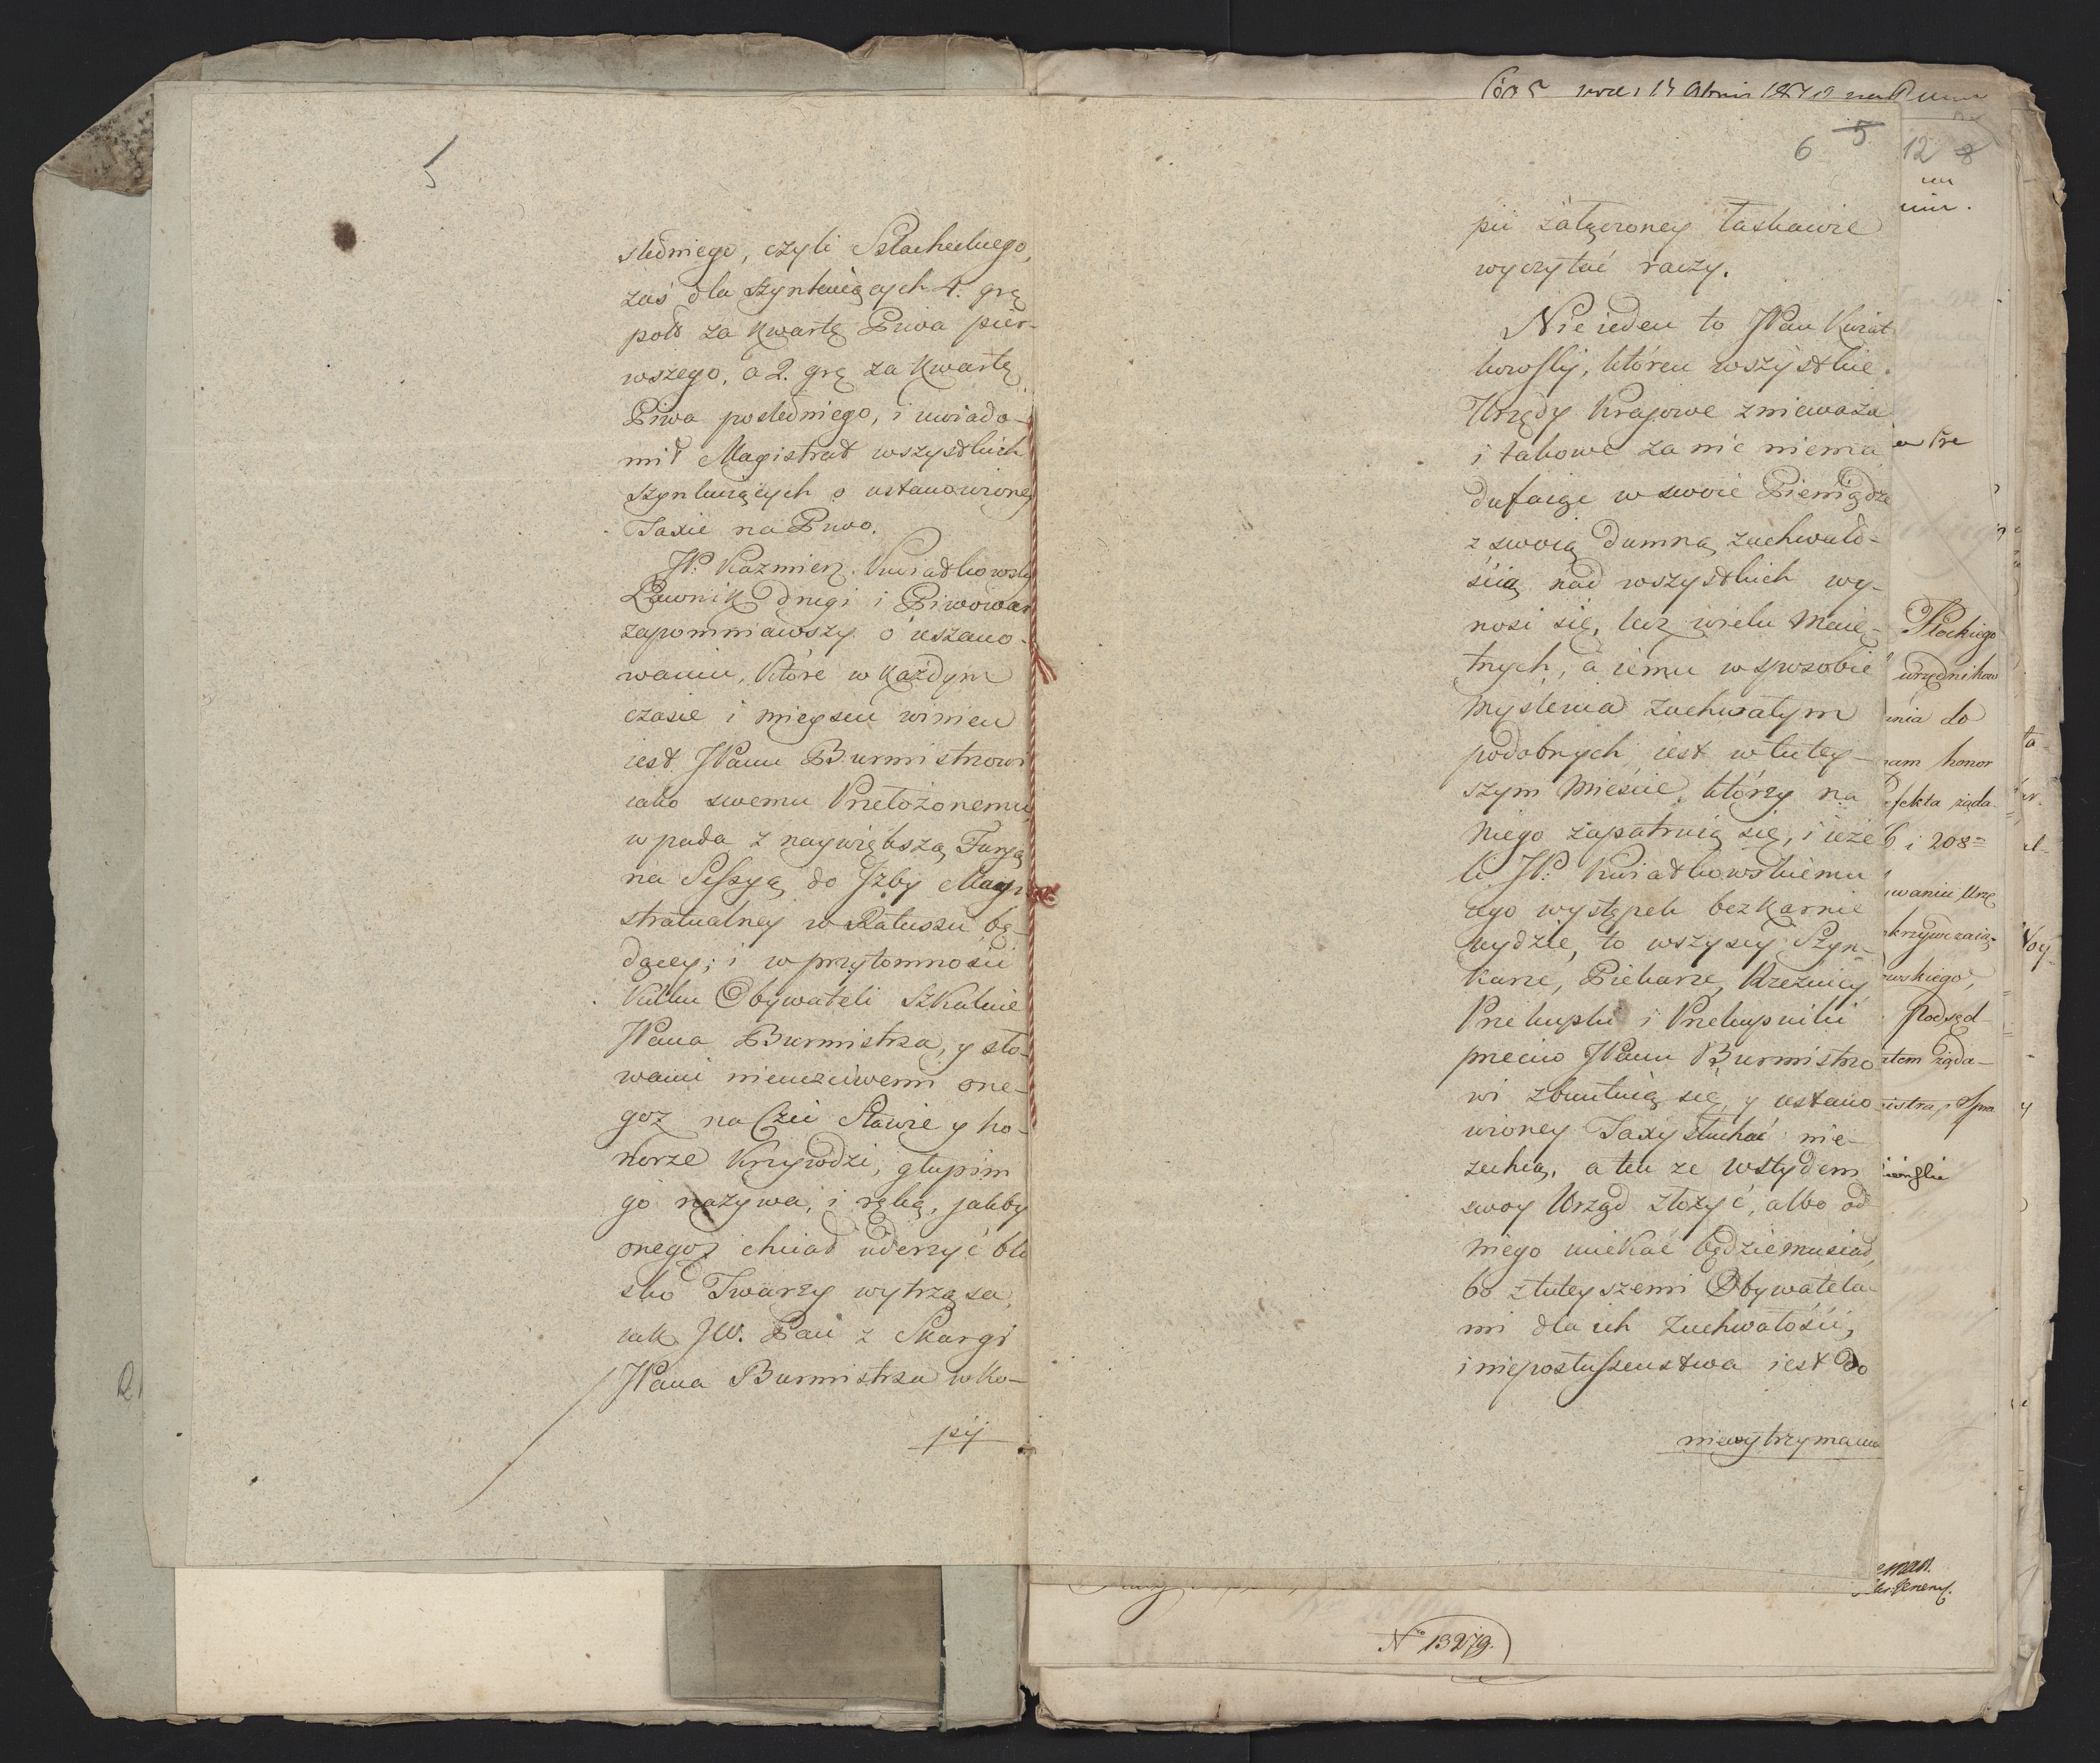 5
sledniego, czyli Szlacheckiego,
zaś dla szynkuiących 4. grę
poł za Kwartę Piwa pier-
wszego, a 2. grę za Kwartę
Piwa posledniego, i uwiado-
mił Magistrat wszystkich
szynkuiących o ustanowioney
Taxie na Piwo.
JP. Kazmierz Kwiatkowski
Ławnik drugi i Piwowar
zapomniawszy o uszano-
waniu, które w każdym
czasie i mieyscu winien
iest JPanu Burmistrzowi
iako swemu Przełożonemu
wpada z naywiększą Furyą
na Sessyą do Jzby Magi-
stratualney w Ratuszu bę-
dącey; i w przytomności
kilku Obywateli szkaluie
JPana Burmistrza, y sło-
wami nieuczciwemi one-
goz na Czci Sławie y ho-
norze krzywdzi, głupim
go nazywa, i ręką, jakby
onegoz chciał uderzyć bli
sko Twarzy wytrząsa,
iak JW. Pan z Skargi
JPana Burmistrza w Ko-
pij
6 5
pii załączoney łaskawie
wyczytać raczy.
Nie ieden to JPan Kwiat
kowski, któren wszystkie
Urzędy Kraiowe znieważa
i takowe za nic niema
dufaiąc w swoie Pieniądze
z swoią dumną zuchwało-
ścią nad wszystkich wy-
nosi się, lecz wielu Maię-
tnych, a iemu w sposobie
Myślenia zuchwałym
podobnych iest w tutey-
szym Mieście, którzy na
Niego zapatruią się, i ieże
li JP. Kwiatkowskiemu
iego występek bezkarnie
uydzie, to wszyscy Szyn-
karze, Piekarze, Rzeźnicy
Przekupki i Przekupniki
przeciw JPanu Burmistrzo
wi zbuntuią się, y ustano
wioney Taxy słuchać nie-
zechcą, a ten ze wstydem
swoy Urząd złożyć, albo od
niego uciekać będzie musiał,
bo z tuteyszemi Obywatela-
mi dla ich Zuchwałości,
i nieposłuszenstwa iest do
niewytrzymania
12 8
Płockiego
urzędnikow
do
honor
żąda-
i 208
waniu Urzę
krzywdzaią-
wskiego,
Podsęd-
żąda-
istra, Spra
No 13279.